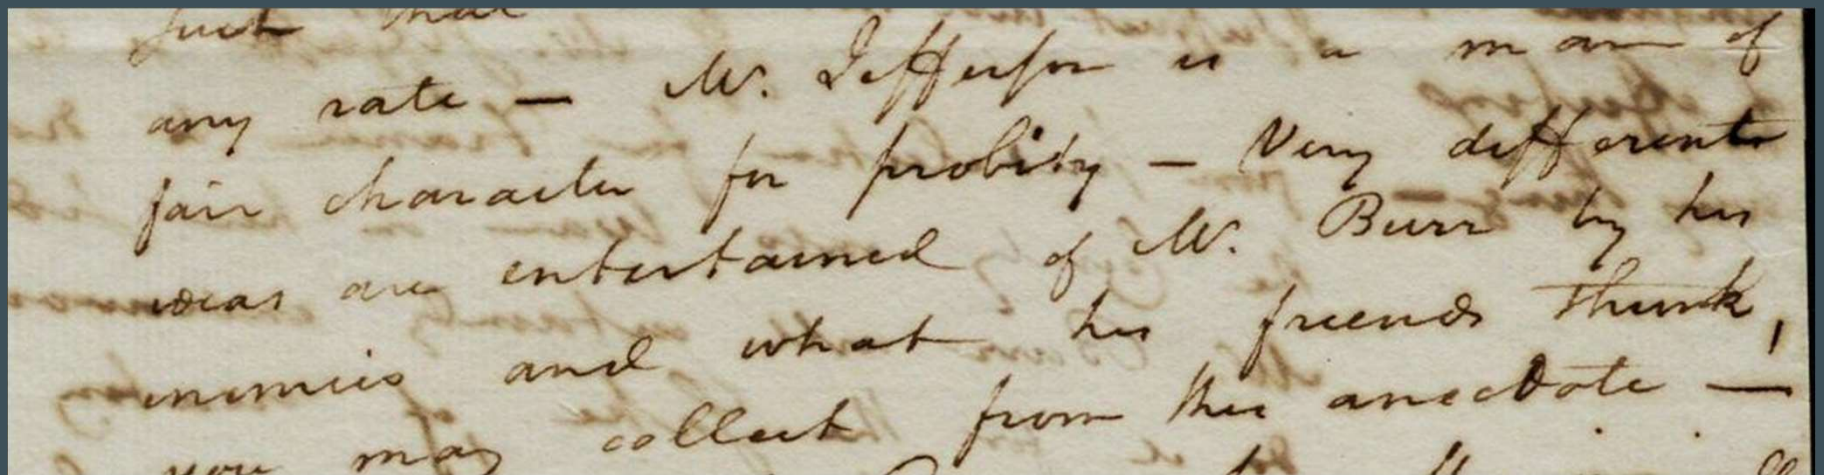 any rate — Mr. Jefferson is a man of
fair character for probity — Very different
ideas are entertained of Mr. Burr by his
enemies and what his friends think,
you may collect from this anecdote —